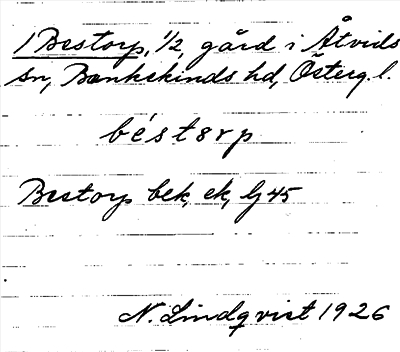 1 Bestorp, 1/2, gård i Åtvids
sn, Bankekinds hd, Österg. l.
béstərp
Bestorp bek, ek, lj 45
N. Lindqvist 1926